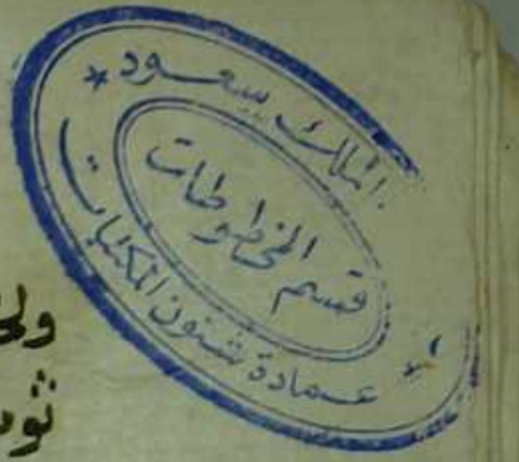 الملك سعود *
قسم
المخطوطات
عمادة شئون المكتبات